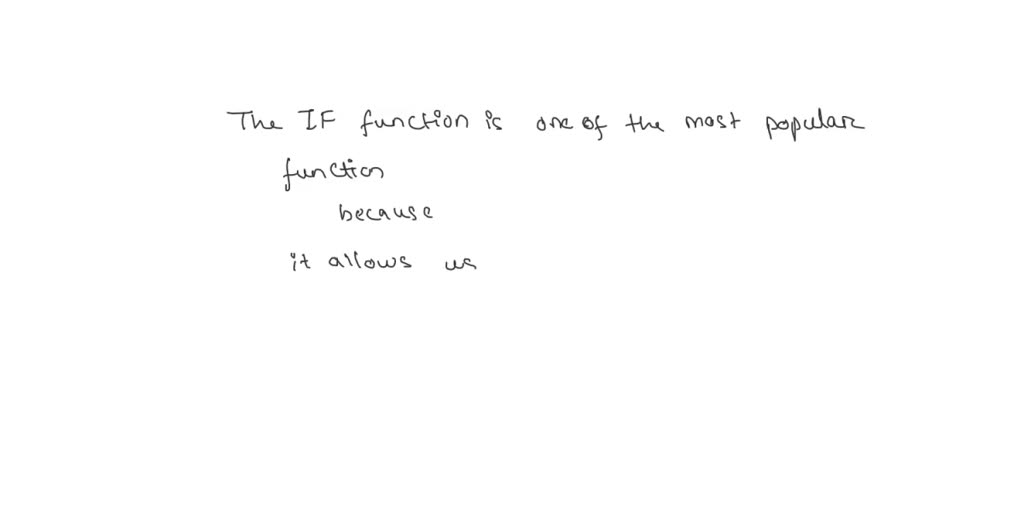 The IF function is one of the most popular
function
because
it allows us